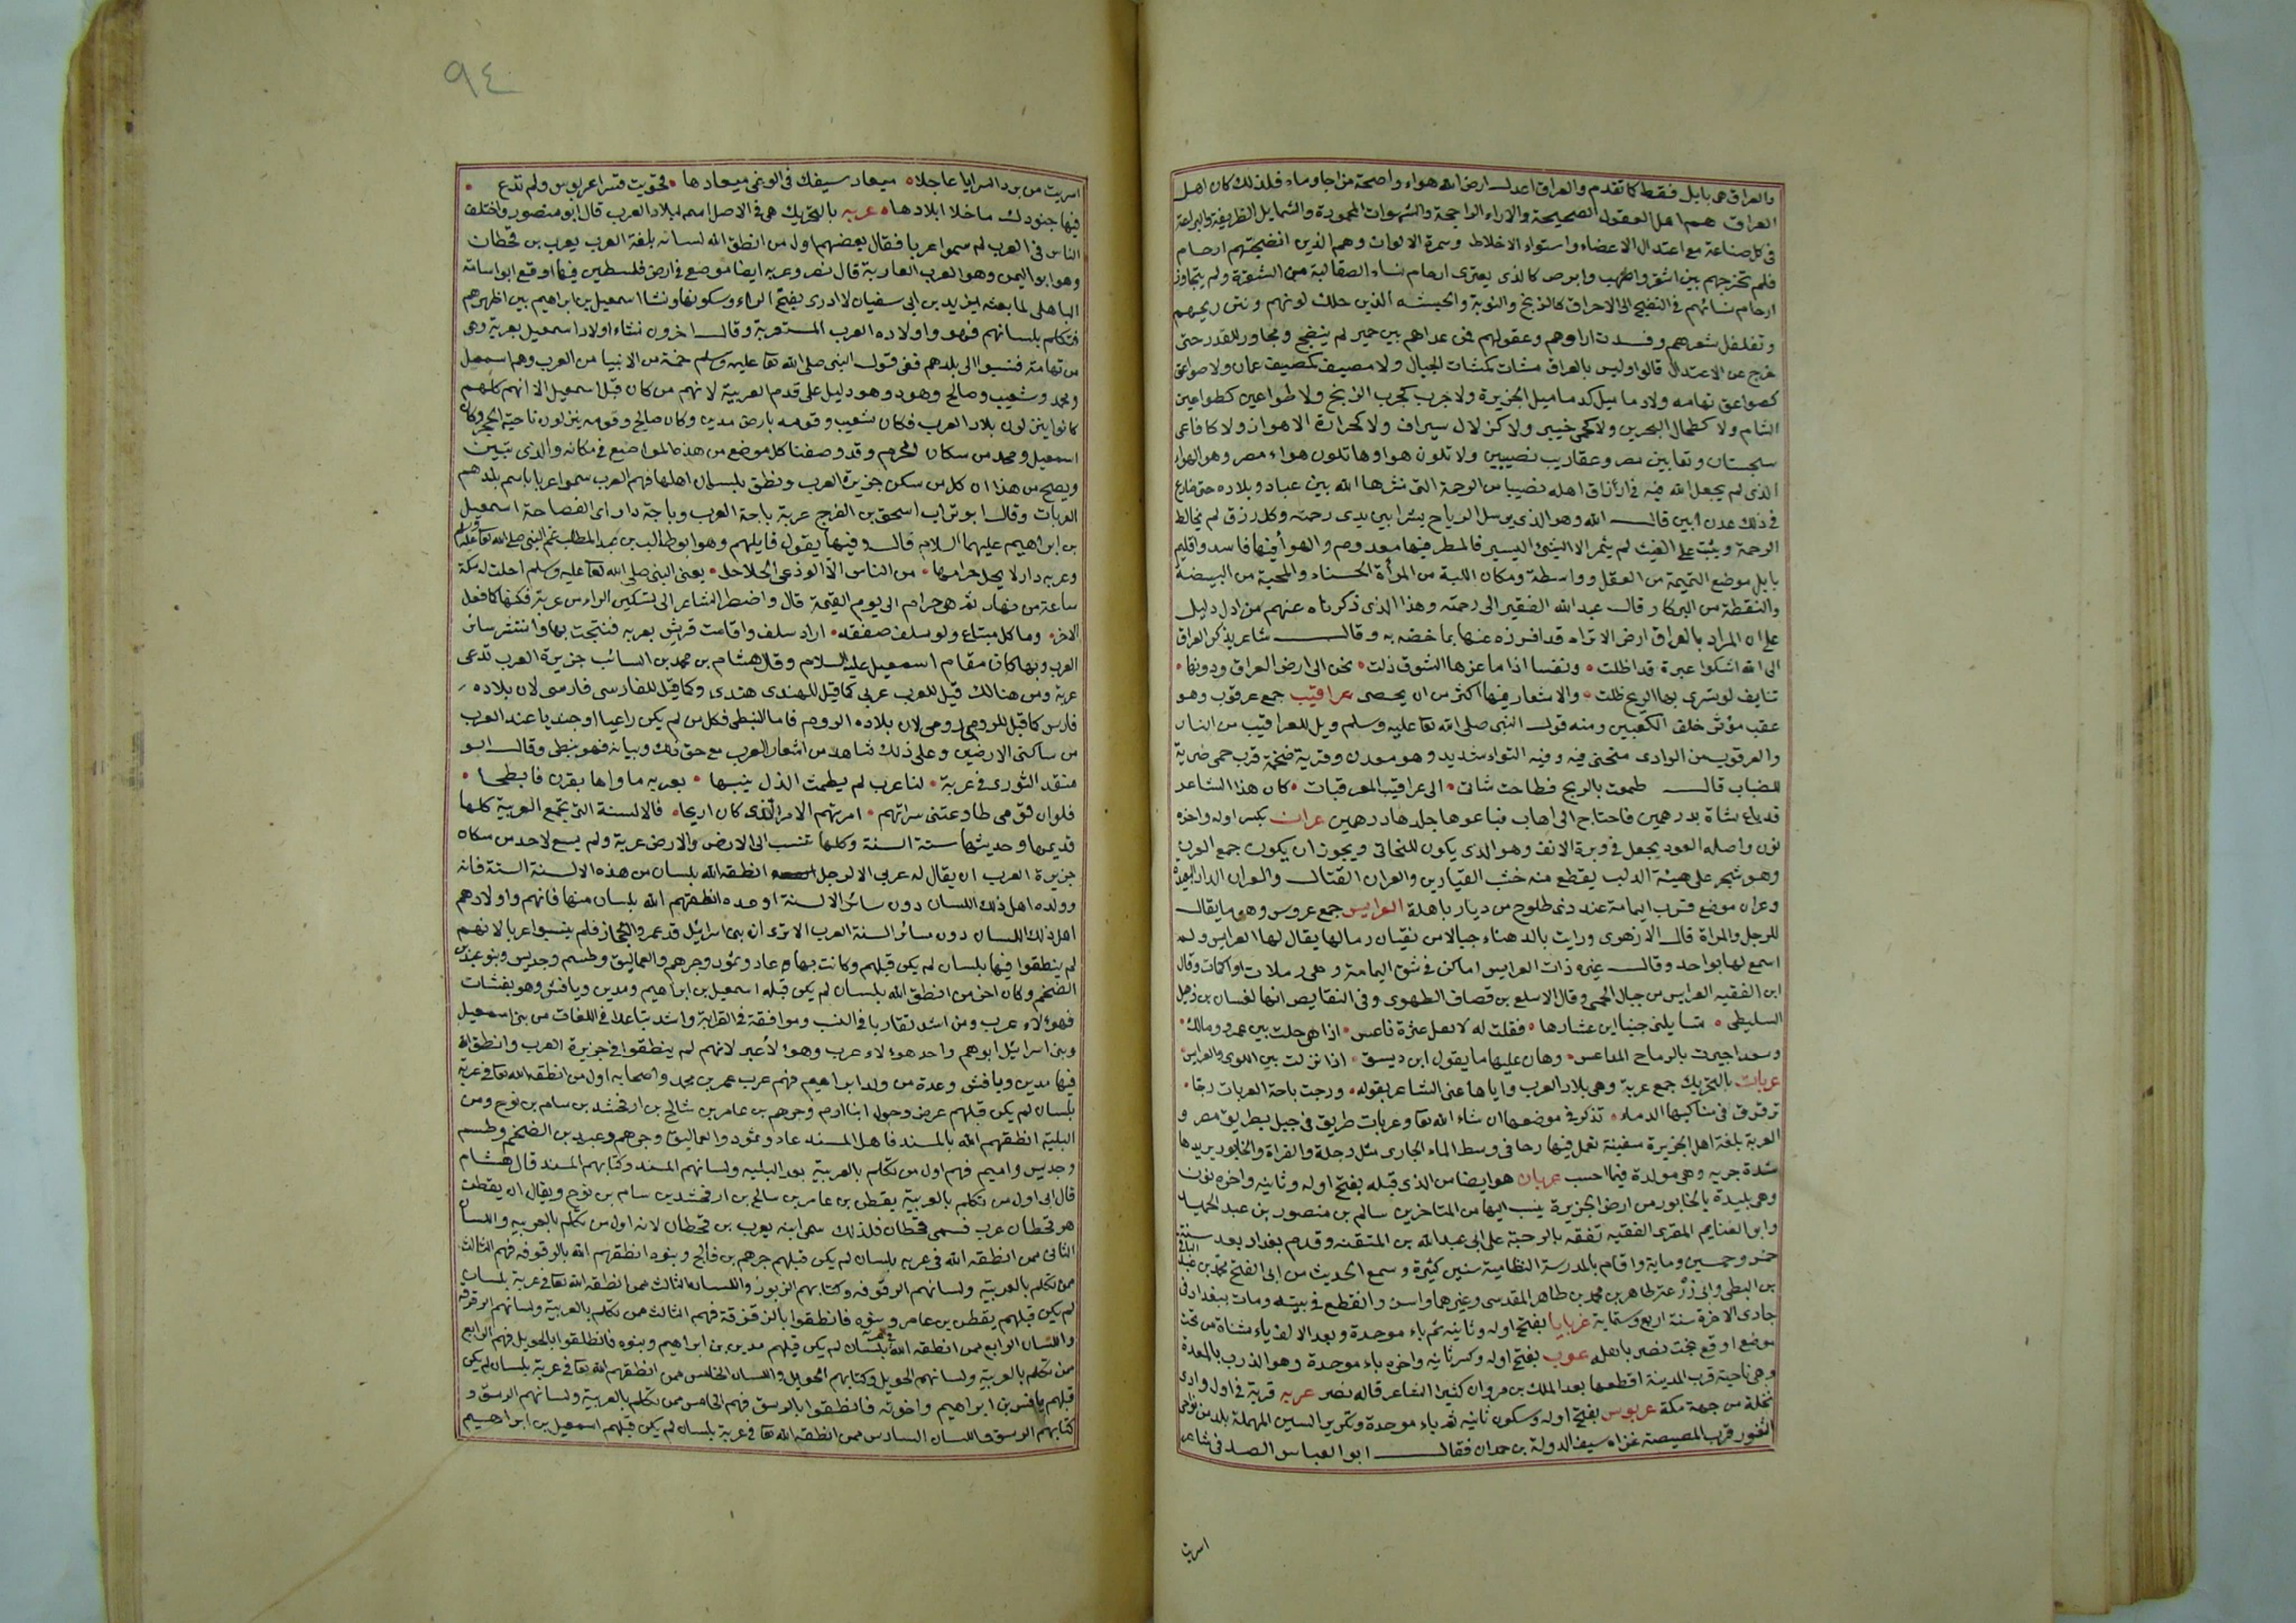 والعراق هى بابل فقط كما تقدم والعراق اعدل ارض الله هواء واصحه مزاجا وماء فلذلك كان اهل
العراق هم اهل العقول الصحيحة والاراء الراجحة والشهوات المحمودة والشمايل الظريفة والبراعة
فى كل صناعة مع اعتدال الاعضاء واستواء الاخلاط وسمرة الالوان وهم الذين انضجتهم ارحام
فلم تخرجهم بين اشقر واصهب وابرص كالذى يعترى ارحام نساء الصقالبة من الشقرة ولم يتجاوز
ارحام نسائهم فى النضج الى الاحراق كالزنج والنوبة والحبشه الذين حلك لونهم ونتن ريحهم
وتفلفل شعرهم وفسدت اراوهم وعقولهم فمن عداهم بين خمير لم ينضج ومجاوز للقدر حتى
خرج عن الاعتدال قالوا وليس بالعراق مشات كمشات الجبال ولا مصيف كمصيف عمان ولا صواعق
كصواعق تهامه ولا دماميل كدماميل الجزيرة ولا جرب كجرب الزنج ولا طواعين كطواعين
الشام ولا كطحال البحرين ولا كحمى خيبر ولا كزلازل سيراف ولا كحرارة الاهواز ولا كافاعى
سجستان وثعابين مصر وعقارب نصيبين ولا تلون هواوها تلون هواء مصر وهو الهواء
الذى لم يجعل الله فيه فى ارزاق اهله نصيبا من الرحمة التى نشرها الله بين عباده وبلاده حتى ضارع
فى ذلك عدن ابين قال الله وهو الذى يرسل الرياح بشرا بين يدى رحمته وكل رزق لم يخالط
الرحمة وينبت على الغيث لم يثمر الا الشئ اليسير فالمطر فيها معدوم والهوا فيها فاسد واقليم
بابل موضع التميمة من العقل وواسطة ومكان اللبة من المرأة الحسناء والمحبة من البيضة
والنقطة من البركار قال عبد الله الفقير الى رحمته وهذا الذى ذكرناه عنهم من ادل دليل
على ان المراد بالعراق ارض الا تراه قد افرزه عنها بما خصه به وقال شاعر يذكر العراق
الى الله اشكوا عبرة قد اظلت • ونفسا اذا ما عزها الشوق ذلت • تحن الى ارض العراق ودونها •
تنايف لو تسرى بها الريح ظلت • والاشعار فيها اكثر من ان يحصى عراقيب جمع عرقوب وهو
عقب موتر خلف الكعبين ومنه قول النبى صلى الله تعا عليه وسلم ويل للعراقيب من النار
والعرقوب من الوادى منحنى فيه وفيه التواء شديد وهو معدن وقرية ضخمة قرب حمى ضرية
للضباب قال طمعت بالربح فطاحت شاتى • الى عراقيب المعرقبات • كان هذا الشاعر
قد باع شاة بدرهمين فاحتاج الى اهاب فباعوها جلدها درهمين عران بكسر اوله واخره
نون واصله العود يجعل فى وترة الانف وهو الذى يكون للبخاتى ويجوز ان يكون جمع العرن
وهو شجر على هيئة الدلب يقطع منه خشب القصارين والعران القتال والعران الدار البعيدة
وعران موضع قرب اليمامة عند ذى طلوح من ديار باهلة العرايس جمع عروس وهو ما يقال
للرجل والمراة قال الازهرى ورايت بالدهناء جبالا من نقيان رمالها يقال لها العرايس ولم
اسمع لها بواحد وقال غيره ذات العرايس اماكن فى شق اليمامة وهى رملات او اكمات وقال
ابن الفقيه العرايس من جبال الحمى وقال الاسلع بن قصاف الطهوى وفى النقايض انها لغسان بن ذهل
السليطى • تسايلنى جنبا ابن عشارها • فقلت له لا لعل عثرة ناعس • اذا هى حلت بين عمرو ومالك •
وسعد اجيرت بالرماح المداعس • وهان عليها ما يقول ابن ديسق • اذا نزلت بين اللوى والعرايس •
عربات بالتحريك جمع عربة وهى بلاد العرب واياها عنى الشاعر بقوله • ورجت باحة العربات رجا •
ترقرق فى مناكبها الدماء • تذكر فى موضعها ان شاء الله تعا وعربات طريق فى جبل بطريق مصر و
العربة بلغة اهل الجزيرة سفينة تعمل فيها رحا فى وسط الماء الجارى مثل دجلة والفراة والخابور يريدها
شدة جريه وهى مولدة فيما احسب عربان هو ايضا من الذى قبله بفتح اوله وثانيه واخره نون
وهى بليدة بالخابور من ارض الجزيرة ينسب اليها من المتاخرين سالم بن منصور بن عبد الحميد
وابو الغنايم المقرى الفقيه تفقه بالرحبة على ابى عبد الله بن المتقنه وقدم بغداد بعد سنة
خمس وخمسين وماية واقام بالمدرسة النظامية سنين كثيرة وسمع الحديث من ابى الفتح محمد بن عبد الباقى
بن البطى وابى زرعة طاهر بن محمد بن طاهر المقدسى وغيرهما واسن وانقطع فى بيته ومات ببغداد فى
جمادى الاخرة سنة اربع وستماية عربايا بفتح اوله وثانيه ثم باء موحدة وبعد الالف ياء مثناة من تحت
موضع اوقع بخت نصر باهله عرب بفتح اوله وكسر ثانيه واخره باء موحدة وهو الذرب بالمعدة
وهى ناحية قرب المدينة اقطعها عبد الملك بن مروان كثيرا الشاعر قاله نصر عربه قرية فى اول وادى
نخلة من جهة مكة عربسوس بفتح اوله وسكون ثانيه ثم باء موحدة وتكرير السين المهملة بلد من نواحى
الثغور قرب المصيصة غزاه سيف الدولة بن حمدان فقال ابو العباس الصفرى شاعر
اسريت
٩٤
اسريت من برد السرايا عاجلا • ميعاد سيفك فى الوغى ميعادها • فحويت قسرا عربسوس ولم تدع •
فيها جنودك ما خلا ابلادها • عربه بالتحريك هى فى الاصل اسم لبلاد العرب قال ابو منصور واختلف
الناس فى العرب لم سموا عربا فقال بعضهم اول من انطق الله لسانه بلغة العرب يعرب بن قحطان
وهو ابو اليمن وهو العرب العاربة قال نصر وعربه ايضا موضع فى ارض فلسطين فيها اوقع ابو اسامة
الباهلى لما بعثه يزيد بن ابى سفيان لا ادرى بفتح الراء وسكونها ونشا اسمعيل بن ابراهيم بين اظهرهم
فتكلم بلسانهم فهو واولاده العرب المستعربة وقال اخرون نشاء اولاد اسمعيل بعربة وهى
من تهامة فنسبوا الى بلدهم ففى قول النبى صلى الله تعا عليه وسلم خمسة من الانبيا من العرب وهم اسمعيل
ومحمد وشعيب وصالح وهود وهو دليل على قدم العربية لانهم من كان قبل اسمعيل الا انهم كلهم
كانوا ينزلون بلاد العرب فكان شعيب وقومه بارض مدين وكان صالح وقومه ينزلون ناحية الحجر وكان
اسمعيل ومحمد من سكان الحرم وقد وصفنا كل موضع من هذه المواضع فى مكانه والذى تبين
ويصح من هذا ان كل من سكن جزيرة العرب ونطق بلسان اهلها فهم العرب سموا عربا باسم بلدهم
العربات وقال ابو تراب اسحق بن الفرج عربة باحة العرب وباحة دار ابى الفصاحة اسمعيل
بن ابراهيم عليهما السلام قال وفيها يقول قايلهم وهو ابو طالب بن عبد المطلب عم النبى صلى الله تعا عليه وسلم
وعربه دار لا يحل حرامها • من الناس الا اللوذعى الحلاحل • يعنى النبى صلى الله تعا عليه وسلم احلت له مكة
ساعة من نهار ثم هى حرام الى يوم القيمة قال واضطر الشاعر الى تسكين الراء من عربة فسكنها كما فعل
الاخر • وما كل مبتاع ولو سلف صفقه • اراد سلف واقامت قريش بعربه فتنخت بها وانتشر سائر
العرب وبها كان مقام اسمعيل عليه السلام وقال هشام بن محمد بن السائب جزيرة العرب تدعى
عربة ومن هنالك قيل للعرب عربى كما قيل للهندى هندى وكما قيل للفارسى فارسى لان بلاده
فارس كما قيل للرومى رومى لان بلاده الروم فاما النبطى فكل من لم يكن راعيا او جنديا عند العرب
من ساكنى الارضين وعلى ذلك شاهد من اشعار العرب مع حق ذلك وبيانه فهو نبطى وقال ابو
منقد الثورى فى عربة • لنا عرب لم يطمث الذل ينبها • بعربه ماواها بقرن فابطحا •
فلو ان قومى طاوعتنى سراتهم • امرتهم الامر الذى كان اريحا • فالالسنة التى تجمع العربية كلها
قديمها وحديثها ستة السنة وكلها تنسب الى الارض والارض عربة ولم يسمع لاحد من سكان
جزيرة العرب ان يقال له عربى الا لرجل انطقه الله بلسان من هذه الالسنة الستة فانه
وولده اهل ذلك اللسان دون سائر الالسنة اوعده انطقهم الله بلسان منها فانهم واولادهم
اهل ذلك اللسان دون سائر السنة العرب الا ترى ان بنى اسرائيل قد عمروا الحجاز فلم ينسبوا عربا لانهم
لم ينطقوا فيها بلسان لم يكن قبلهم وكانت بها عاد وثمود وجرهم والعماليق وطسم وجديس وبنو عبد بن
الضخم وكان اخر من انطق الله بلسان لم يكن قبله اسمعيل بن ابراهيم ومدين ويافش وهو يفشان
فهؤلاء عرب ومن اشد تقاربا فى النسب وموافقة فى القرابة واشد تباعدا فى اللغات من بنى اسمعيل
وبنى اسرائيل ابوهم واحد هولاء عرب وهولاء عبر لانهم لم ينطقوا فى جزيرة العرب وانطق الله
فيها مدين ويافش وعدة من ولد ابراهيم فهم عرب عمر بن محمد واصحابه اول من انطقه الله تعا فى عربة
بلسان لم يكن قبلهم عوض وحول ابنا ارم وجرهم بن عامر بن شالخ بن ارفخشد بن سام بن نوح ومن
البلية انطقهم الله بالمسند فاهل المسند عاد وثمود والعماليق وجرهم وعبد بن الضخم وطسم
وجديس واميم فهم اول من تكلم بالعربية بعد البلبله ولسانهم المسند وكتابهم المسند قال هشام
قال ابى اول من تكلم بالعربية يقطن بن عامر بن سالخ بن ارفخشد بن سام بن نوح ويقال ان يقطن
هو قحطان عرب فسمى قحطان فلذلك سمى ابنه يعرب بن قحطان لانه اول من تكلم بالعربيه واللسان
الثانى ممن انطقه الله فى عربه بلسان لم يكن قبلهم جرهم بن فالج وبنوه انطقهم الله بالزقوفه فهم الثالث
ممن تكلم بالعربيه ولسانهم الزقوفه وكتابهم الزبور واللسان الثالث ممن انطقه الله تعا فى عربة بلسان
لم يكن قبلهم يقطن بن عامر وبنوه فانطقوا بالزقزقة فهم الثالث ممن تكلم بالعربية ولسانهم الزقزقه
واللسان الرابع ممن انطقه الله بلسان لم يكن قبلهم مدين بن ابراهيم وبنوه فانطلقوا بالحويل فهم الرابع
ممن تكلم بالعربية ولسانهم الحويل وكتابهم الحويل واللسان الخامس ممن انطقهم الله تعا فى عربة بلسان لم يكن
قبلهم يافش بن ابراهيم واخوته فانطقوا بالرسق فهم الخامس ممن تكلم بالعربية ولسانهم الرسق و
كتابهم الرسق واللسان السادس ممن انطقه الله تعا فى عربة بلسان لم يكن قبلهم اسمعيل بن ابراهيم